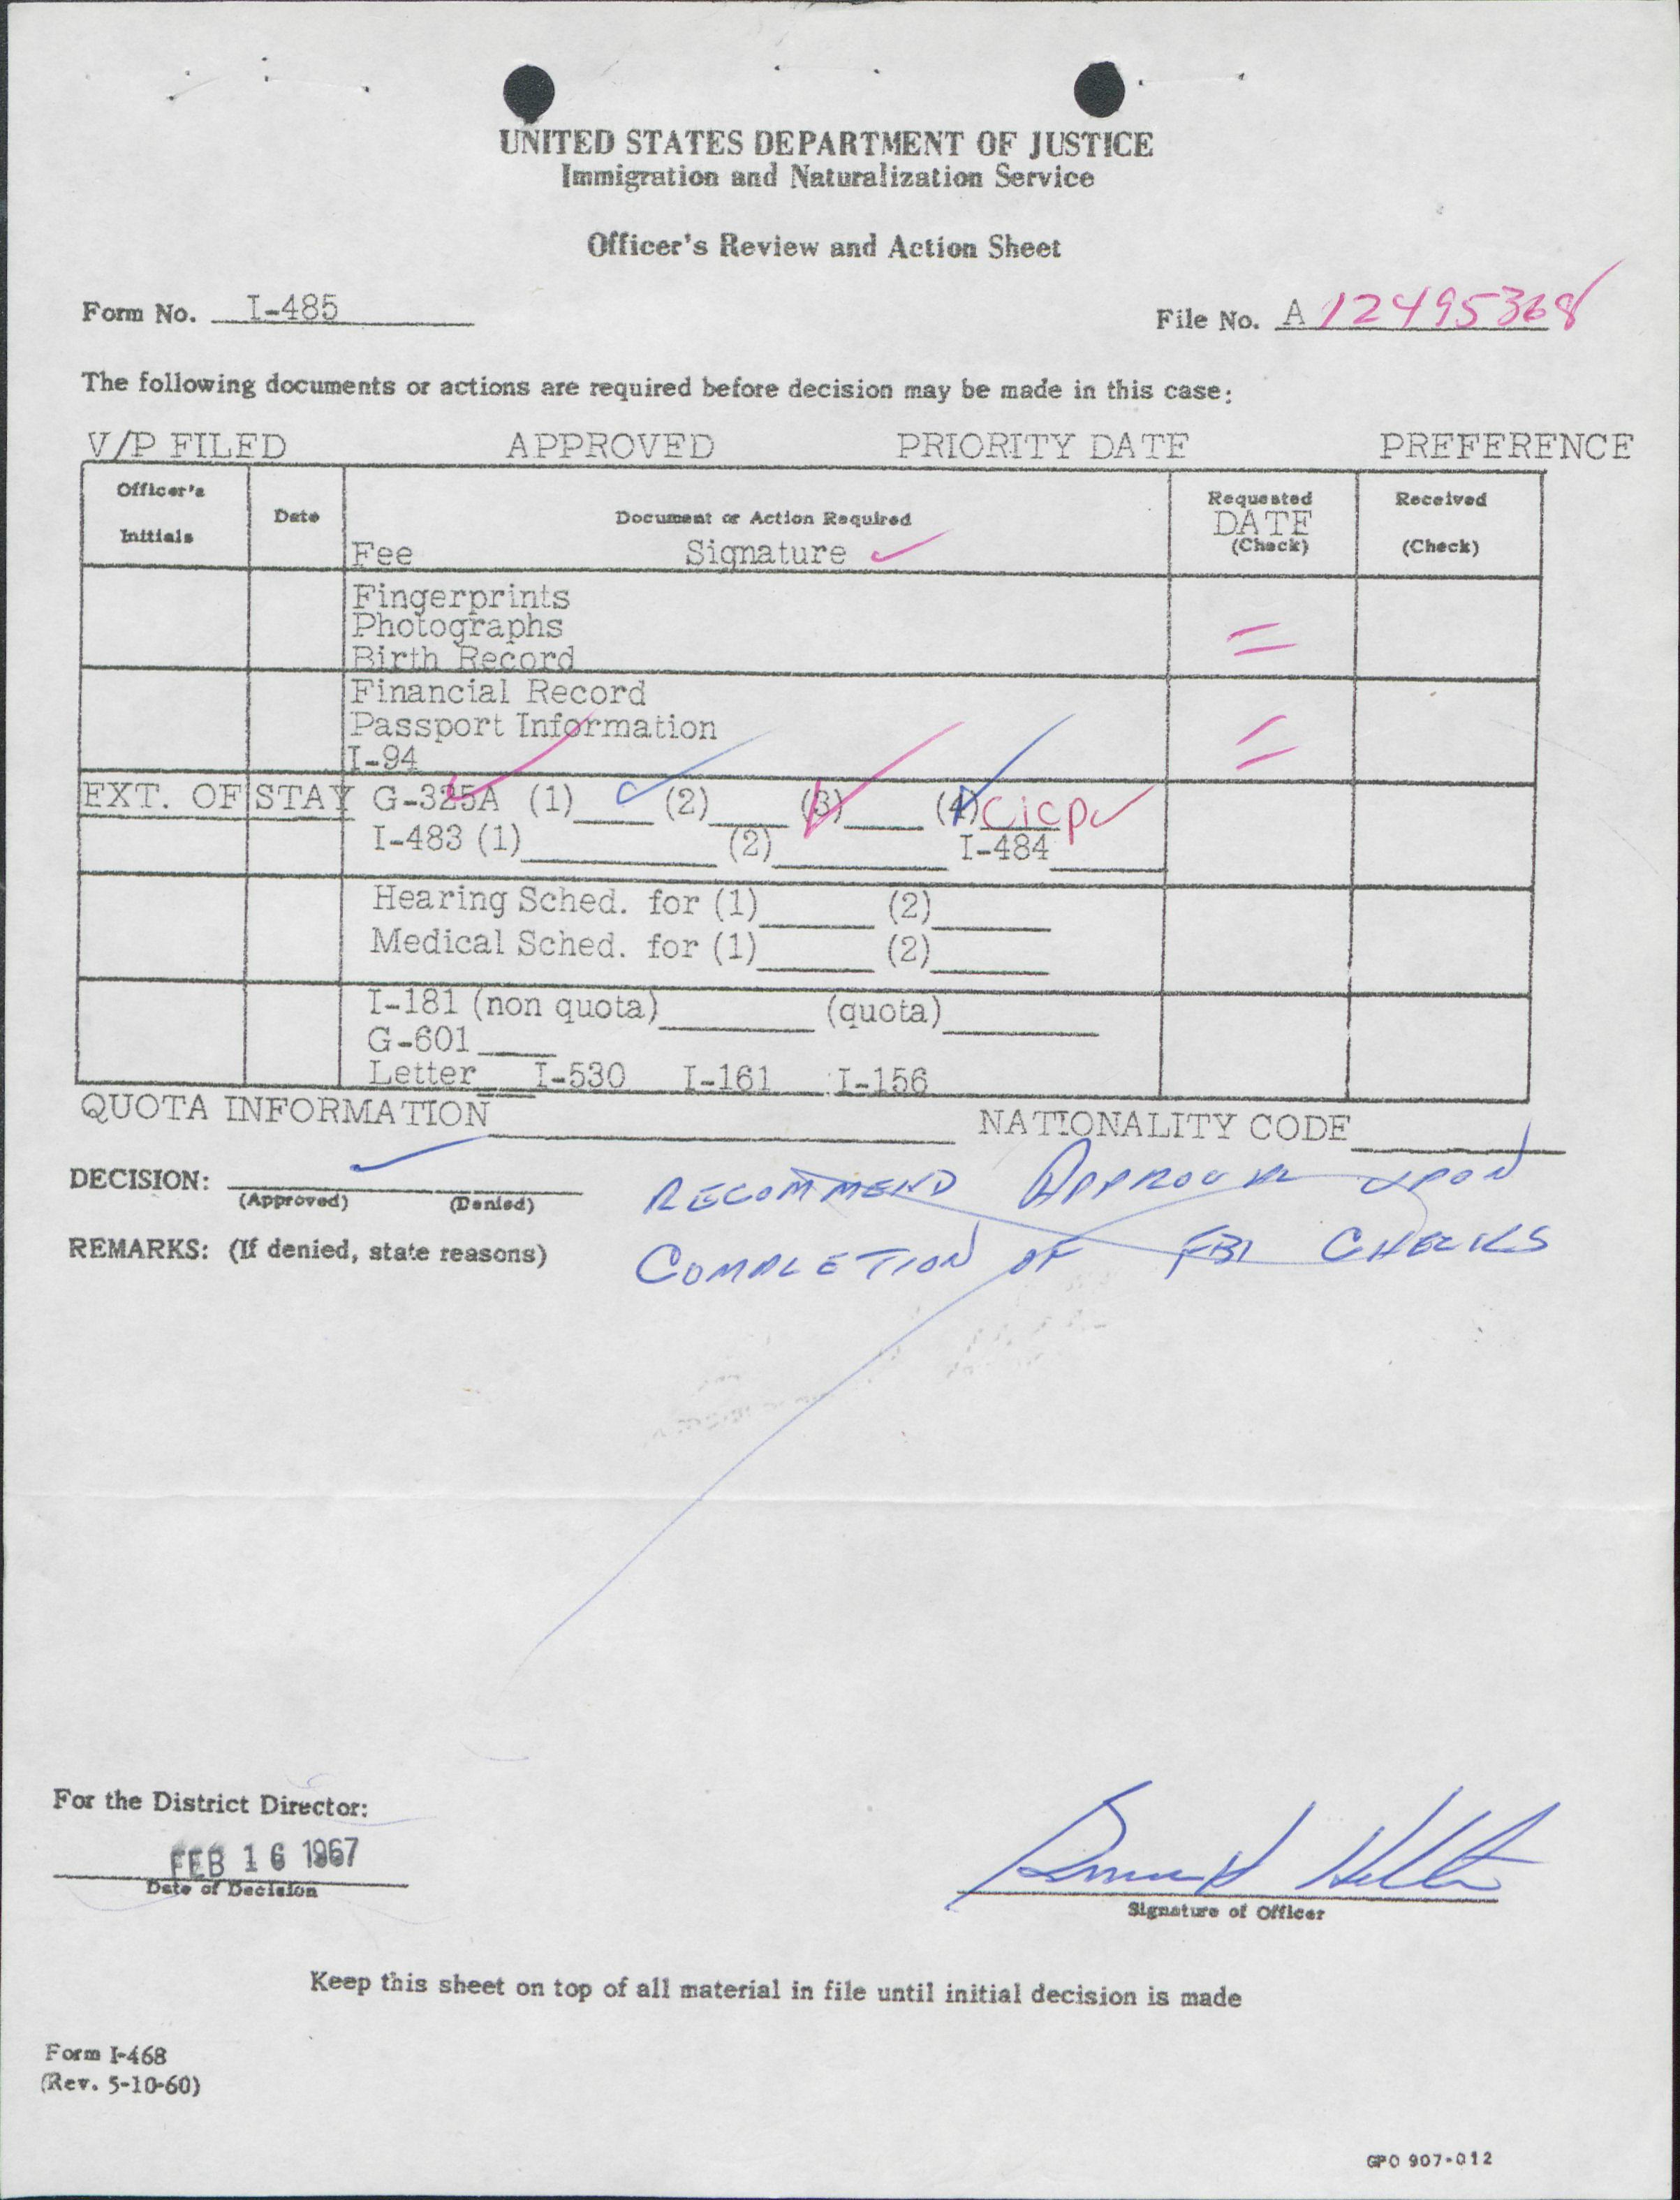 UNITED STATES DEPARTMENT OF JUSTICE
Immigration and Naturalization Service
Officer's Review and Action Sheet
Form No. I-485 File No. A 12495368
The following documents or actions are required before decision may be made in this case:
V/P FILED APPROVED PRIORITY DATE PREFERENCE
Officer's Initials Date Document or Action Required Requested DATE (Check) Received (Check)
Fee Signature ✓
Fingerprints
Photographs
Birth Record
Financial Record
Passport Information
I-94
EXT. OF STAY G-325A (1) (2) (3) (4) Cicp
I-483 (1) (2) I-484
Hearing Sched. for (1) (2)
Medical Sched. for (1) (2)
I-181 (non quota) (quota)
G-601
Letter I-530 I-161 I-156
QUOTA INFORMATION NATIONALITY CODE
DECISION: (Approved) (Denied) RECOMMEND APPROVAL UPON
REMARKS: (If denied, state reasons) COMPLETION OF FBI CHECKS
For the District Director:
FEB 16 1967
Date of Decision
Signature of Officer
Keep this sheet on top of all material in file until initial decision is made
Form I-468
(Rev. 5-10-60)
GPO 907-012